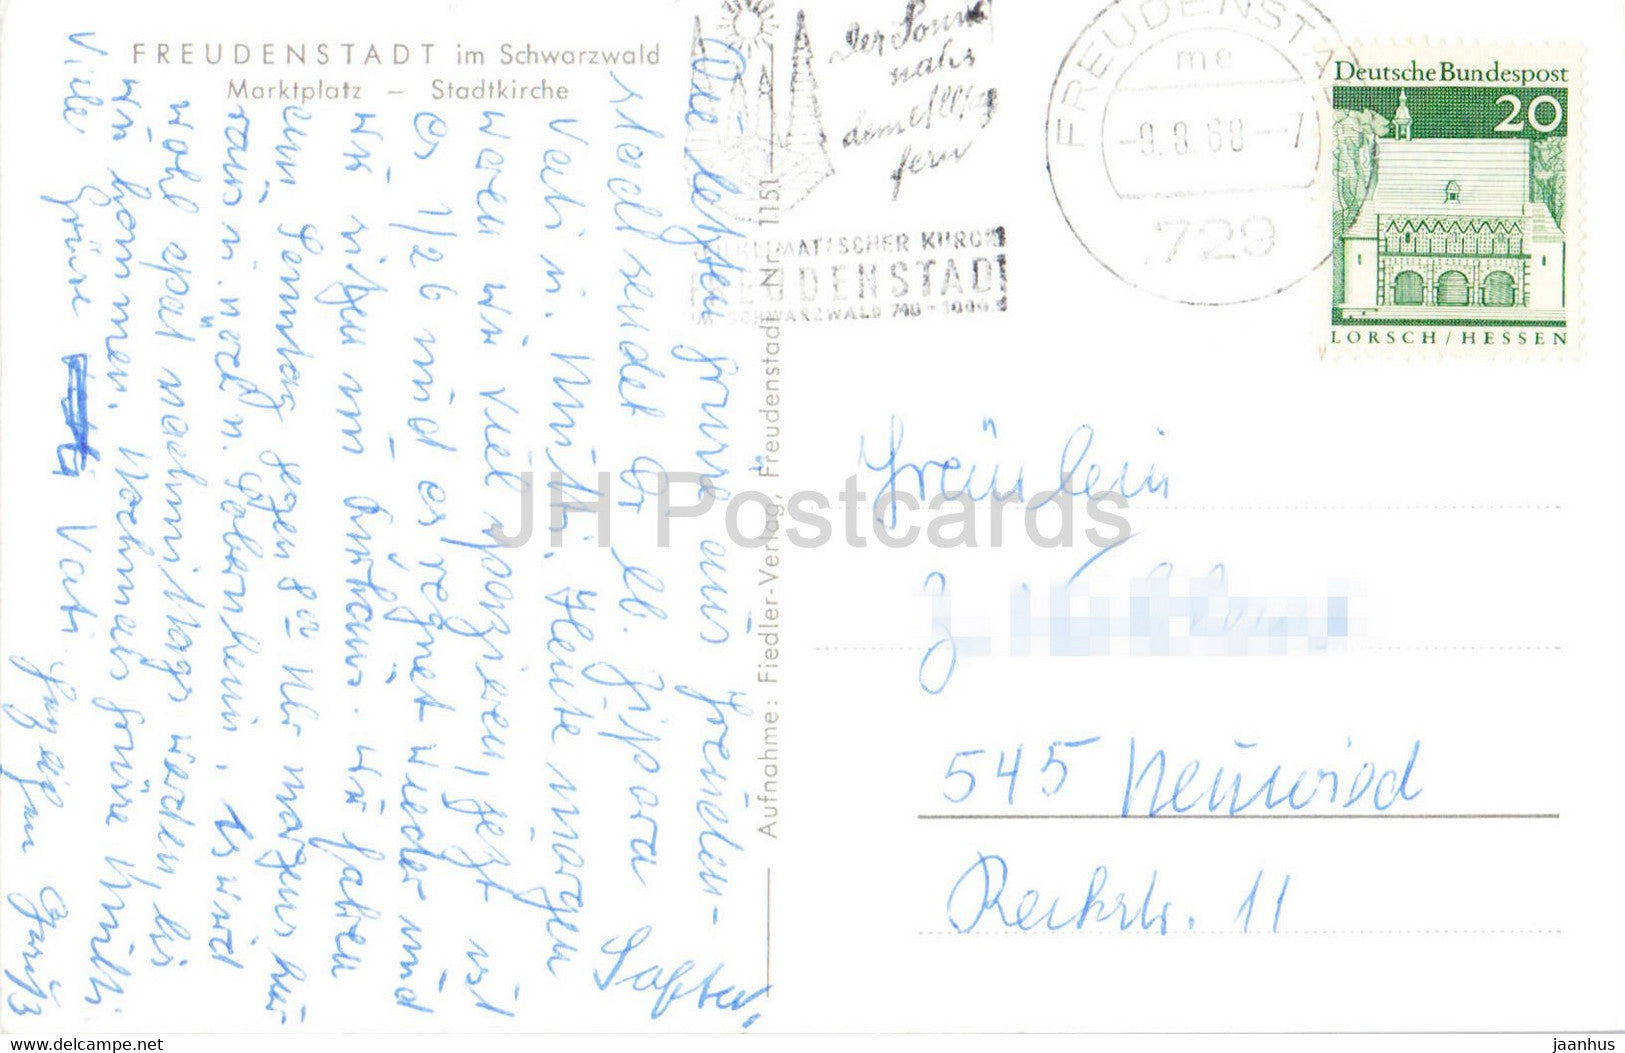 FREUDENSTADT im Schwarzwald
Marktplatz – Stadtkirche
Die letzten Grüße aus Freuden-
stadt sendet Dir lb.
Vati u. Mutti. Heute morgen
waren wir viel spazieren, jetzt ist
es 1/2 6 und es regnet wieder und
wir sitzen im Kurhaus. Wir fahren
am Sonntag gegen 8 Uhr morgens hier
raus u. noch n. Es wird
wohl spät nachmittags werden, bis
wir kommen. Nochmals Grüße Mutti
Viele Grüße Vati
Aufnahme: Fiedler-Verlag, Freudenstadt Nr. 1151
der Sonne
nah
dem Alltag
fern
HEILKLIMATISCHER KURORT
FREUDENSTADT
SCHWARZWALD 740 - 1000
FREUDENSTADT
me
-9.8.68--7
729
Deutsche Bundespost
20
LORSCH/HESSEN
Fräulein
545 Neuwied
11
JH Postcards
www.delcampe.net
jaanhus